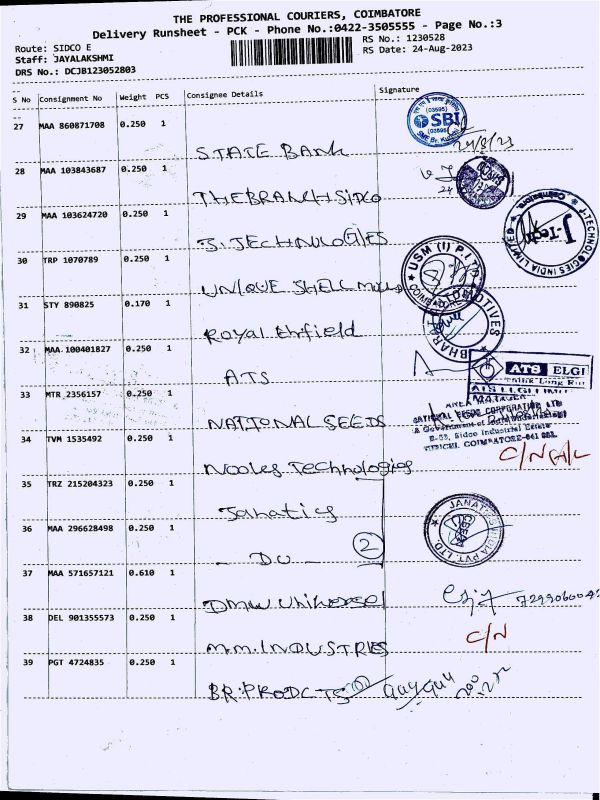 THE PROFESSIONAL COURIERS, COIMBATORE
Delivery Runsheet - PCK - Phone No.:0422-3505555 - Page No.:3
Route: SIDCO E
RS No.: 1230528
Staff: JAYALAKSHMI
RS Date: 24-Aug-2023
DRS No.: DCJB123052803
S No Consignment No Weight PCS Consignee Details Signature
27 MAA 860871708 0.250 1
SBI
STATE BANK
28 MAA 103843687 0.250 1
THE BRANCH SIDCO
29 MAA 103624720 0.250 1
J-TECHNOLOGIES INDIA LIMITED
Coimbatore
J-Tech
J. TECHNOLOGIES
30 TRP 1070789 0.250 1
USM (I) P. LTD
UNIQUE SHELL MOULD
31 STY 890825 0.170 1
Royal Enfield
32 MAA 100401827 0.250 1
ATS ELGI
ATS
33 MTR 2356157 0.250 1
AREA MANAGER
NATIONAL SEEDS CORPORATION LTD
B-53, Sidco Industrial Estate
COIMBATORE-641 021.
NATIONAL SEEDS
34 TVM 1535492 0.250 1
C/N A/L
Nooles Technologies
35 TRZ 215204323 0.250 1
Janatics
36 MAA 296628498 0.250 1
JANATICS INDIA PVT LTD.
- DO - 2
37 MAA 571657121 0.610 1
DMW Universal
38 DEL 901355573 0.250 1
C/N
M.M. INDUSTRIES
39 PGT 4724835 0.250 1
BR. PRODCTS